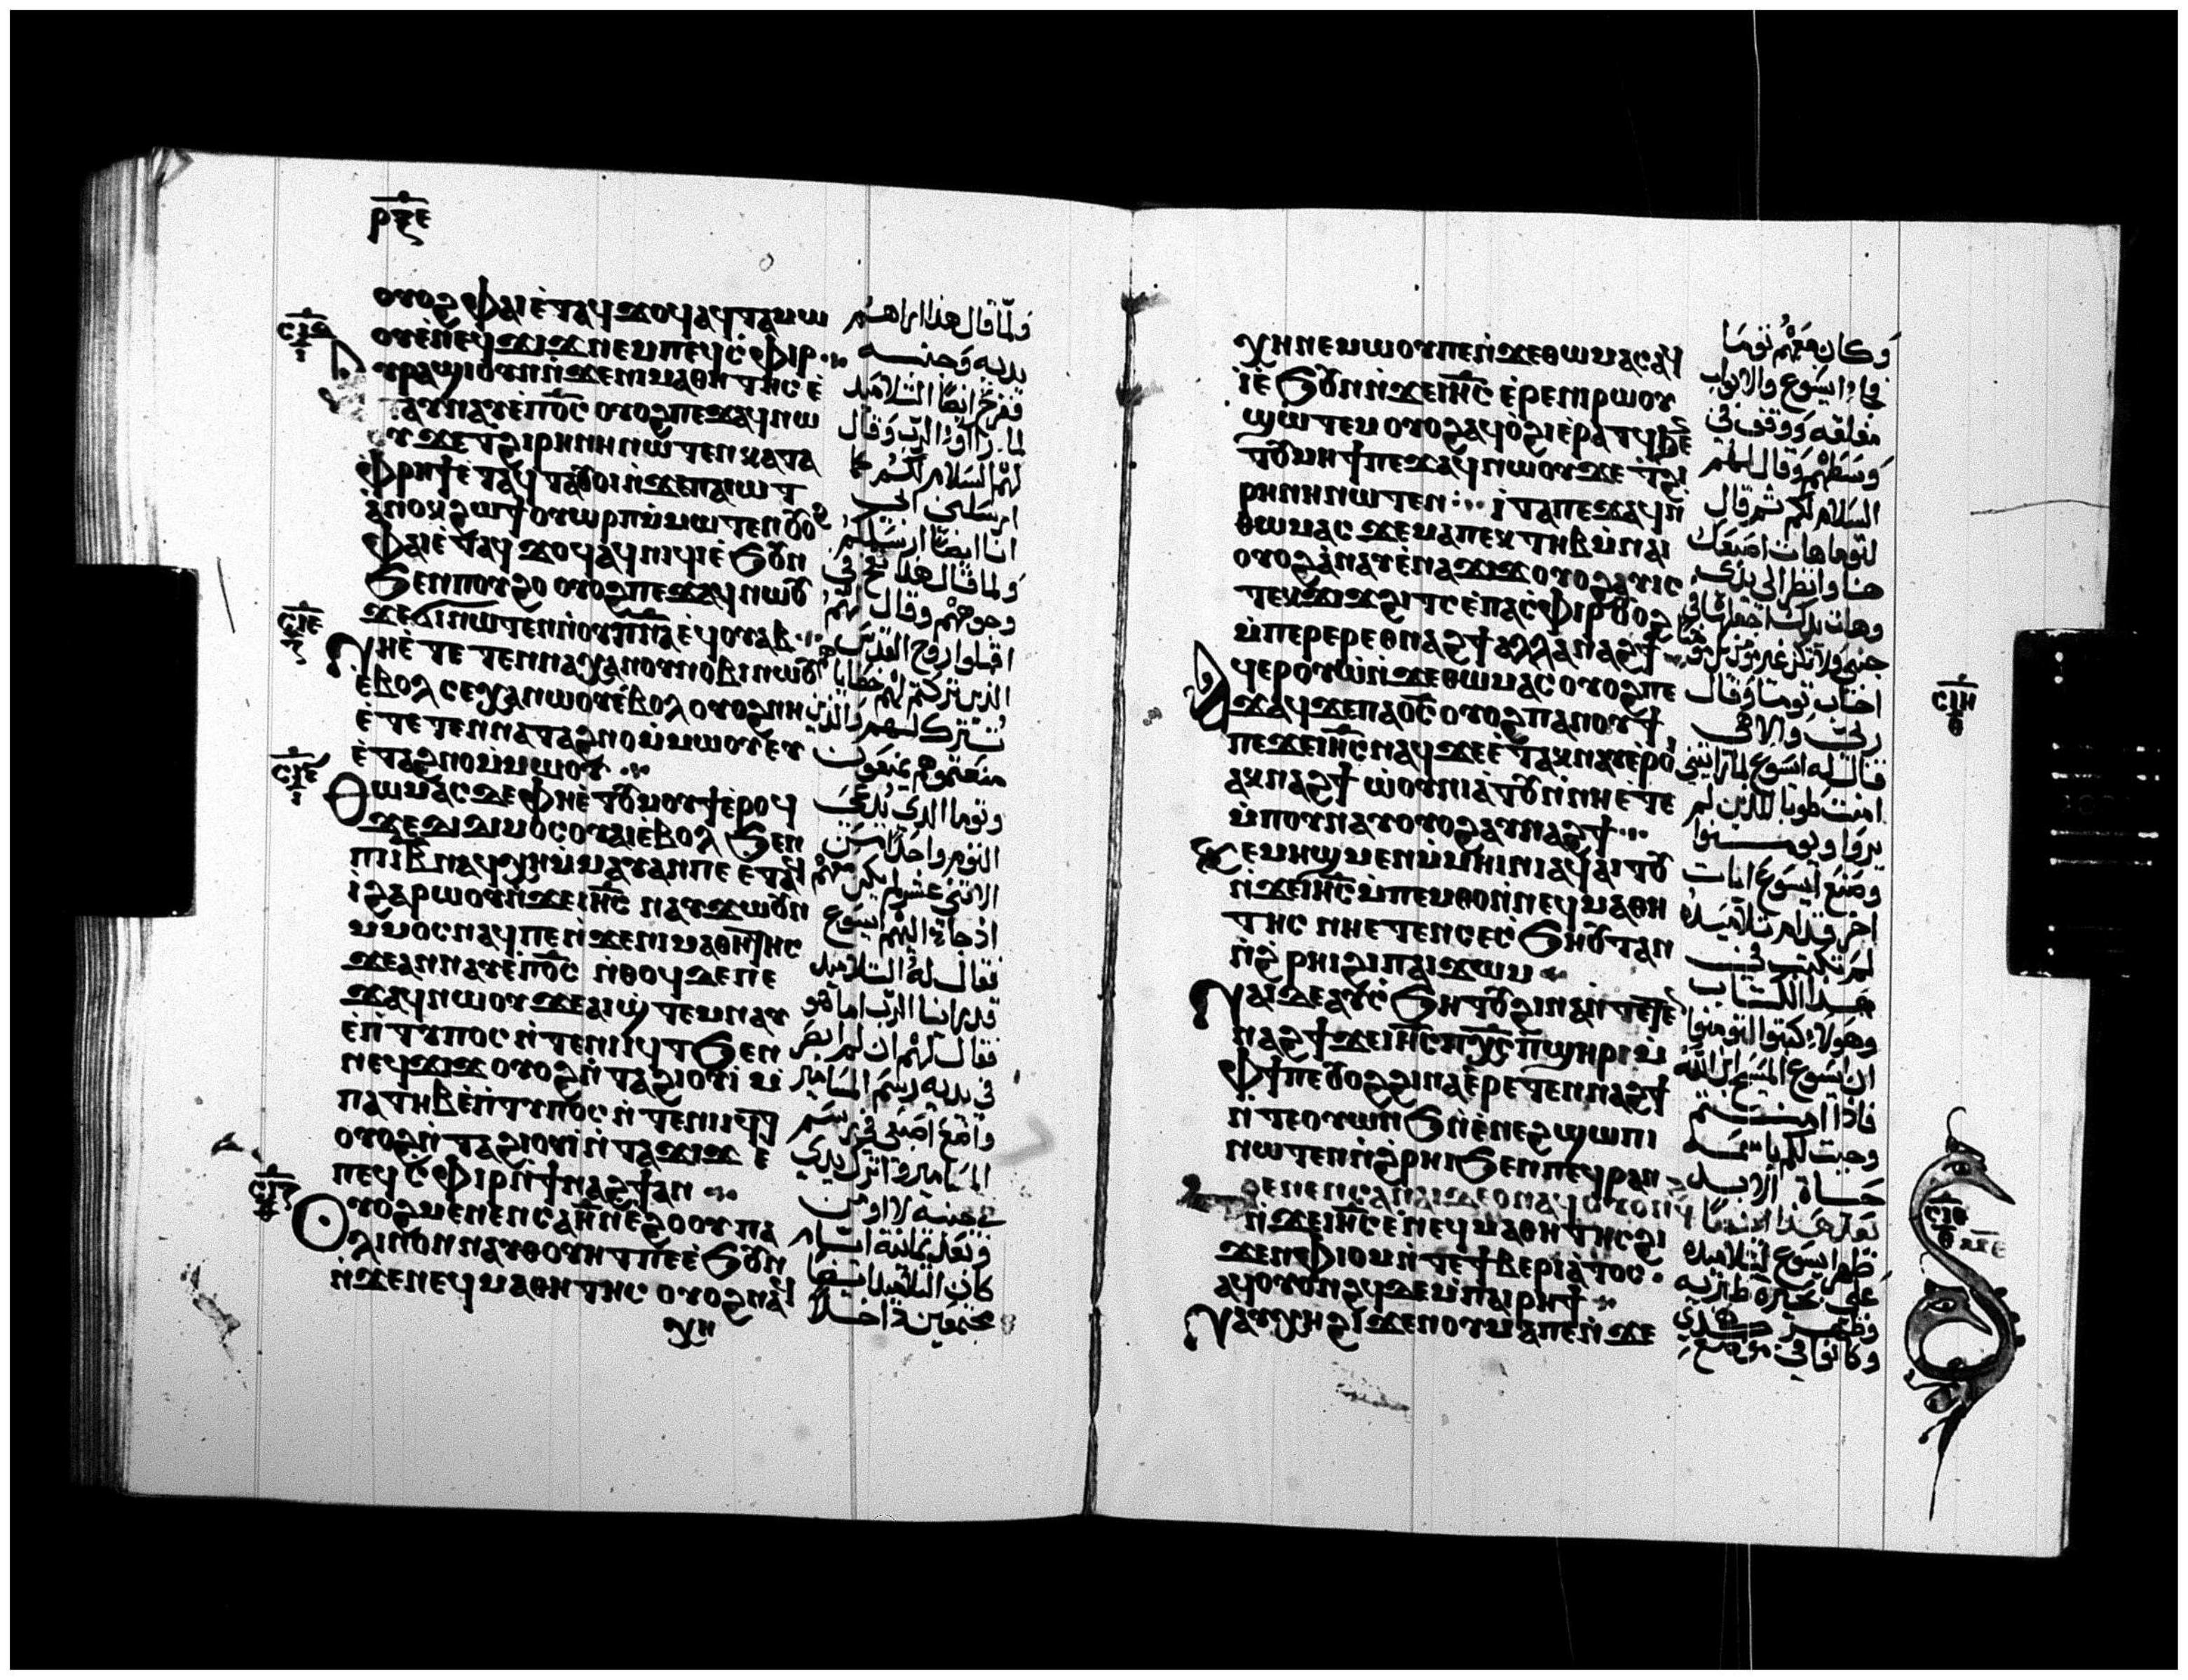 ⲣⲝⲉ
ⲟⲩⲟϩ ⲫⲁⲓ ⲉ̀ⲧⲁϥϫⲟϥ ⲁϥⲧⲁⲙⲱ
ⲟⲩ ⲉ̀ⲛⲉϥϫⲓϫ ⲛⲉⲙ ⲡⲉϥⲥ̀ⲫⲓⲣ
ⲩⲣⲁϣⲓ ⲟⲩⲛ ⲛ̀ϫⲉ ⲛⲓⲙⲁⲑⲏⲧⲏⲥ ⲉ̀
ⲧⲁⲩⲛⲁⲩ ⲉ̀ⲡⲟ̅ⲥ̅ ⲟⲩⲟϩ ⲡⲉϫⲁϥ ⲛⲱ
ⲟⲩ ϫⲉ ⲧϩⲓⲣⲏⲛⲏ ⲛⲱⲧⲉⲛ ⲕⲁⲧⲁ
ⲫⲣⲏϯ ⲉ̀ⲧⲁϥⲧⲁⲟⲩⲟⲓ ⲛ̀ϫⲉ ⲡⲁⲓⲱⲧ
ⲁ̀ⲛⲟⲕ ϩⲱ ϯⲟⲩⲱⲣⲡ ⲙ̀ⲙⲱⲧⲉⲛ ⲟⲩⲟϩ
ⲫⲁⲓ ⲉ̀ⲧⲁϥϫⲟϥ ⲁϥⲛⲓϥⲓ ⲉ̀ϧⲟⲩⲛ
ϧⲉⲛ ⲡⲟⲩϩⲟ ⲟⲩⲟϩ ⲡⲉϫⲁϥ ⲛⲱⲟⲩ
ϫⲉ ϭⲓ ⲛⲱⲧⲉⲛ ⲛ̀ⲟⲩⲡ̅ⲛ̅ⲁ̅ ⲉϥⲟⲩⲁⲃ
ⲛⲏ ⲉ̀ⲧⲉⲧⲉⲛⲛⲁⲭⲁ ⲛⲟⲩⲛⲟⲃⲓ ⲛⲱⲟⲩ
ⲉ̀ⲃⲟⲗ ⲥⲉⲭⲁ ⲛⲱⲟⲩ ⲉ̀ⲃⲟⲗ ⲟⲩⲟϩ ⲛⲏ
ⲉ̀ⲧⲉⲧⲉⲛⲛⲁⲧⲁϩⲛⲟ ⲙ̀ⲙⲱⲟⲩ ⲉⲩ
ⲉ̀ⲧⲁϩⲛⲟ ⲙ̀ⲙⲱⲟⲩ
ⲑⲱⲙⲁⲥ ⲇⲉ ⲫⲏ ⲉ̀ⲧⲟⲩⲙⲟⲩϯ ⲉ̀ⲣⲟϥ
ϫⲉ ⲇⲓⲇⲓⲙⲟⲥ ⲟⲩⲁⲓ ⲉ̀ⲃⲟⲗ ϧⲉⲛ
ⲡⲓⲓ̅ⲃ̅ ⲛⲁϥⲭⲏ ⲙ̀ⲙⲁⲩ ⲁⲛ ⲡⲉ ⲉ̀ⲧⲁϥ
ⲓ̀ ϩⲁⲣⲱⲟⲩ ⲛ̀ϫⲉ ⲓⲏ̅ⲥ̅ ⲛⲁⲩϫⲱ ⲟⲩⲛ
ⲙ̀ⲙⲟⲥ ⲛⲁϥ ⲡⲉ ⲛ̀ϫⲉ ⲛⲓⲙⲁⲑⲏⲧⲏⲥ
ϫⲉ ⲁⲛⲛⲁⲩ ⲉ̀ⲡⲟ̅ⲥ̅ ⲛ̀ⲑⲟϥ ⲇⲉ ⲡⲉ
ϫⲁϥ ⲛⲱⲟⲩ ϫⲉ ⲁⲓϣ̀ⲧⲉⲙⲛⲁⲩ
ⲉ̀ⲡ̀ⲧⲩⲡⲟⲥ ⲛ̀ⲧⲉ ⲛⲓⲓϥⲧ ϧⲉⲛ
ⲛⲉϥϫⲓϫ ⲟⲩⲟϩ ⲛ̀ⲧⲁϩⲓⲟⲩⲓ̀ ⲙ̀
ⲡⲁⲧⲏⲃ ⲉ̀ⲡ̀ⲧⲩⲡⲟⲥ ⲛ̀ⲧⲉ ⲛⲓⲓϥⲧ
ⲟⲩⲟϩ ⲛ̀ⲧⲁϩⲓⲟⲩⲓ̀ ⲛ̀ⲧⲁϫⲓϫ ⲉ
ⲡⲉϥⲥ̀ⲫⲓⲣ ⲛ̀ϯⲛⲁϩϯ ⲁⲛ
ⲟⲩⲟϩ ⲙⲉⲛⲉⲛⲥⲁ ⲏ̅ ⲛ̀ⲉϩⲟⲟⲩ ⲡⲁ
ⲗⲓⲛ ⲟⲛ ⲛⲁⲩⲑⲟⲩⲏⲧ ⲡⲉ ⲉ̀ϧⲟⲩⲛ
ⲛ̀ϫⲉ ⲛⲉϥⲙⲁⲑⲏⲧⲏⲥ ⲟⲩⲟϩ ⲛⲁϥ
ⲭⲏ
ولما قال هذا اراهم
يديه وجنبه
ففرح ايضا التلاميذ
لما راوا الرب وقال
لهم السلام لكم كما
ارسلني ابي
انا ايضا ارسلكم
ولما قال هذا نفخ في
وجوههم وقال لهم
اقبلوا روح القدس
الذين تركتم لهم خطايا
تترك لهم والذين
منعتموهم يمنعون
وتوما الذي يدعى
التوم واحدا من
الاثني عشر لم يكن معهم
اذ جاء اليهم يسوع
فقال له التلاميذ
قد راينا الرب اما هو
فقال لهم ان لم ابصر
في يديه رسم المسامير
واضع اصبعي في رسم
المسامير واترك يدي
في جنبه لا اومن
وبعد ثمانية ايام
كان التلاميذ ايضا
مجتمعين داخلا
ⲭⲏ ⲛⲉⲙⲱⲟⲩ ⲡⲉ ⲛ̀ϫⲉ ⲑⲱⲙⲁⲥ ⲁϥ
ⲓ̀ ⲉ̀ϧⲟⲩⲛ ⲛ̀ϫⲉ ⲓⲏ̅ⲥ̅ ⲉ̀ⲣⲉ ⲛⲓⲣⲱⲟⲩ
ϣⲱⲧⲉⲙ ⲟⲩⲟϩ ⲁϥⲟ̀ϩⲓ ⲉ̀ⲣⲁⲧϥ ϧⲉⲛ
ⲧⲟⲩⲙⲏϯ ⲡⲉϫⲁϥ ⲛⲱⲟⲩ ϫⲉ ⲧ̀ϩⲓ
ⲣⲏⲛⲏ ⲛⲱⲧⲉⲛ ⲓ̀ⲧⲁ ⲡⲉϫⲁϥ ⲛ̀
ⲑⲱⲙⲁⲥ ϫⲉ ⲙⲁ ⲡⲉⲕⲧⲏⲃ ⲙ̀ⲛⲁⲓ
ⲟⲩⲟϩ ⲁ̀ⲛⲁⲩ ⲉ̀ⲛⲁϫⲓϫ ⲟⲩⲟϩ ⲁⲩⲓⲥ
ⲧⲉⲕϫⲓϫ ϩⲓⲧⲥ ⲉ̀ⲡⲁⲥ̀ⲫⲓⲣ ⲟⲩⲟϩ
ⲙ̀ⲡⲉⲣⲉⲣ ⲉⲑⲛⲁϩϯ ⲁⲗⲗⲁ ⲛⲁϩϯ
ⲁϥⲉⲣⲟⲩⲱ̀ ⲛ̀ϫⲉ ⲑⲱⲙⲁⲥ ⲟⲩⲟϩ ⲡⲉ
ϫⲁϥ ϫⲉ ⲡⲁⲟ̅ⲥ̅ ⲟⲩⲟϩ ⲡⲁⲛⲟⲩϯ
ⲡⲉϫⲉ ⲓⲏ̅ⲥ̅ ⲛⲁϥ ϫⲉ ⲉ̀ⲧⲁⲕⲛⲁⲩ ⲉ̀ⲣⲟⲓ
ⲁⲕⲛⲁϩϯ ⲱ̀ⲟⲩⲛⲓⲁ̀ⲧⲟⲩ ⲛ̀ⲛⲏ ⲉ̀ⲧⲉ
ⲙ̀ⲡⲟⲩⲛⲁⲩ ⲟⲩⲟϩ ⲁⲩⲛⲁϩϯ
ⲕⲉⲙⲏϣ ⲙⲉⲛ ⲙ̀ⲙⲏⲓⲛⲓ ⲁϥⲁⲓⲧⲟⲩ
ⲛ̀ϫⲉ ⲓⲏ̅ⲥ̅ ⲙ̀ⲡⲉⲙⲑⲟ ⲛ̀ⲛⲉϥⲙⲁⲑⲏ
ⲧⲏⲥ ⲛⲏ ⲉⲧⲉⲛⲥⲉⲥ̀ϧⲏⲟⲩⲧ ⲁⲛ
ⲛ̀ϩ̀ⲣⲏⲓ ϩⲓ ⲡⲁⲓϫⲱⲙ
ⲛⲁⲓ ⲇⲉ ⲁⲩⲥ̀ϧⲏⲧⲟⲩ ϩⲓⲛⲁ ⲛ̀ⲧⲉⲧⲉⲛ
ⲛⲁϩϯ ϫⲉ ⲓⲏ̅ⲥ̅ ⲡⲭ̅ⲥ̅ ⲡ̀ϣⲏⲣⲓ ⲙ̀
ⲫϯ ⲡⲉ ⲟⲩⲟϩ ϩⲓⲛⲁ ⲉ̀ⲣⲉⲧⲉⲛⲛⲁϩϯ
ⲛ̀ⲧⲉ ⲟⲩⲱⲛϧ ⲛ̀ⲉ̀ⲛⲉϩ ϣⲱⲡⲓ
ⲛⲱⲧⲉⲛ ⲛ̀ϩ̀ⲣⲏⲓ ϧⲉⲛ ⲡⲉϥⲣⲁⲛ
ⲙⲉⲛⲉⲛⲥⲁ ⲛⲁⲓ ⲇⲉ ⲟⲛ ⲁϥⲟⲩⲟⲛϩϥ
ⲛ̀ϫⲉ ⲓⲏ̅ⲥ̅ ⲉ̀ⲛⲉϥⲙⲁⲑⲏⲧⲏⲥ ϩⲓ
ϫⲉⲛ ⲫⲓⲟⲙ ⲛ̀ⲧⲉ ϯⲃⲉⲣⲓⲁ̀ⲧⲟⲥ
ⲁϥⲟⲩⲟⲛϩϥ ⲇⲉ ⲙ̀ⲡⲁⲓⲣⲏϯ
ⲛⲁⲩⲭⲏ ϩⲓ ϫⲉⲛ ⲟⲩⲙⲁ ⲡⲉ ⲛ̀ϫⲉ
وكان معهم توما
فجاء يسوع والابواب
مغلقة ووقف في
وسطهم وقال لهم
السلام لكم ثم قال
لتوما هات اصبعك
هنا وانظر الى يدي
وهات يدك اجعلها في
اجاب توما وقال
ربي والاهي
قال له يسوع لما رايتني
امنت طوبا للذين لم
يروا ويومنوا
وصنع يسوع ايات
اخر قدام تلاميذه
لم تكتب في
هذا الكتاب
وهولاء كتبوا لتومنوا
ان يسوع المسيح ابن الله
فاذا امنتم
وجبت لكم باسمه
حياة الابد
بعد هذا ايضا
ظهر يسوع لتلاميذه
على بحيرة طبرية
وظهر هكذي
وكانوا في موضع
ⲥⲓⲇ
ⲥⲓⲉ
ⲥⲓⲍ
ⲥⲓⲏ
ⲑ
ⲥⲓⲑ